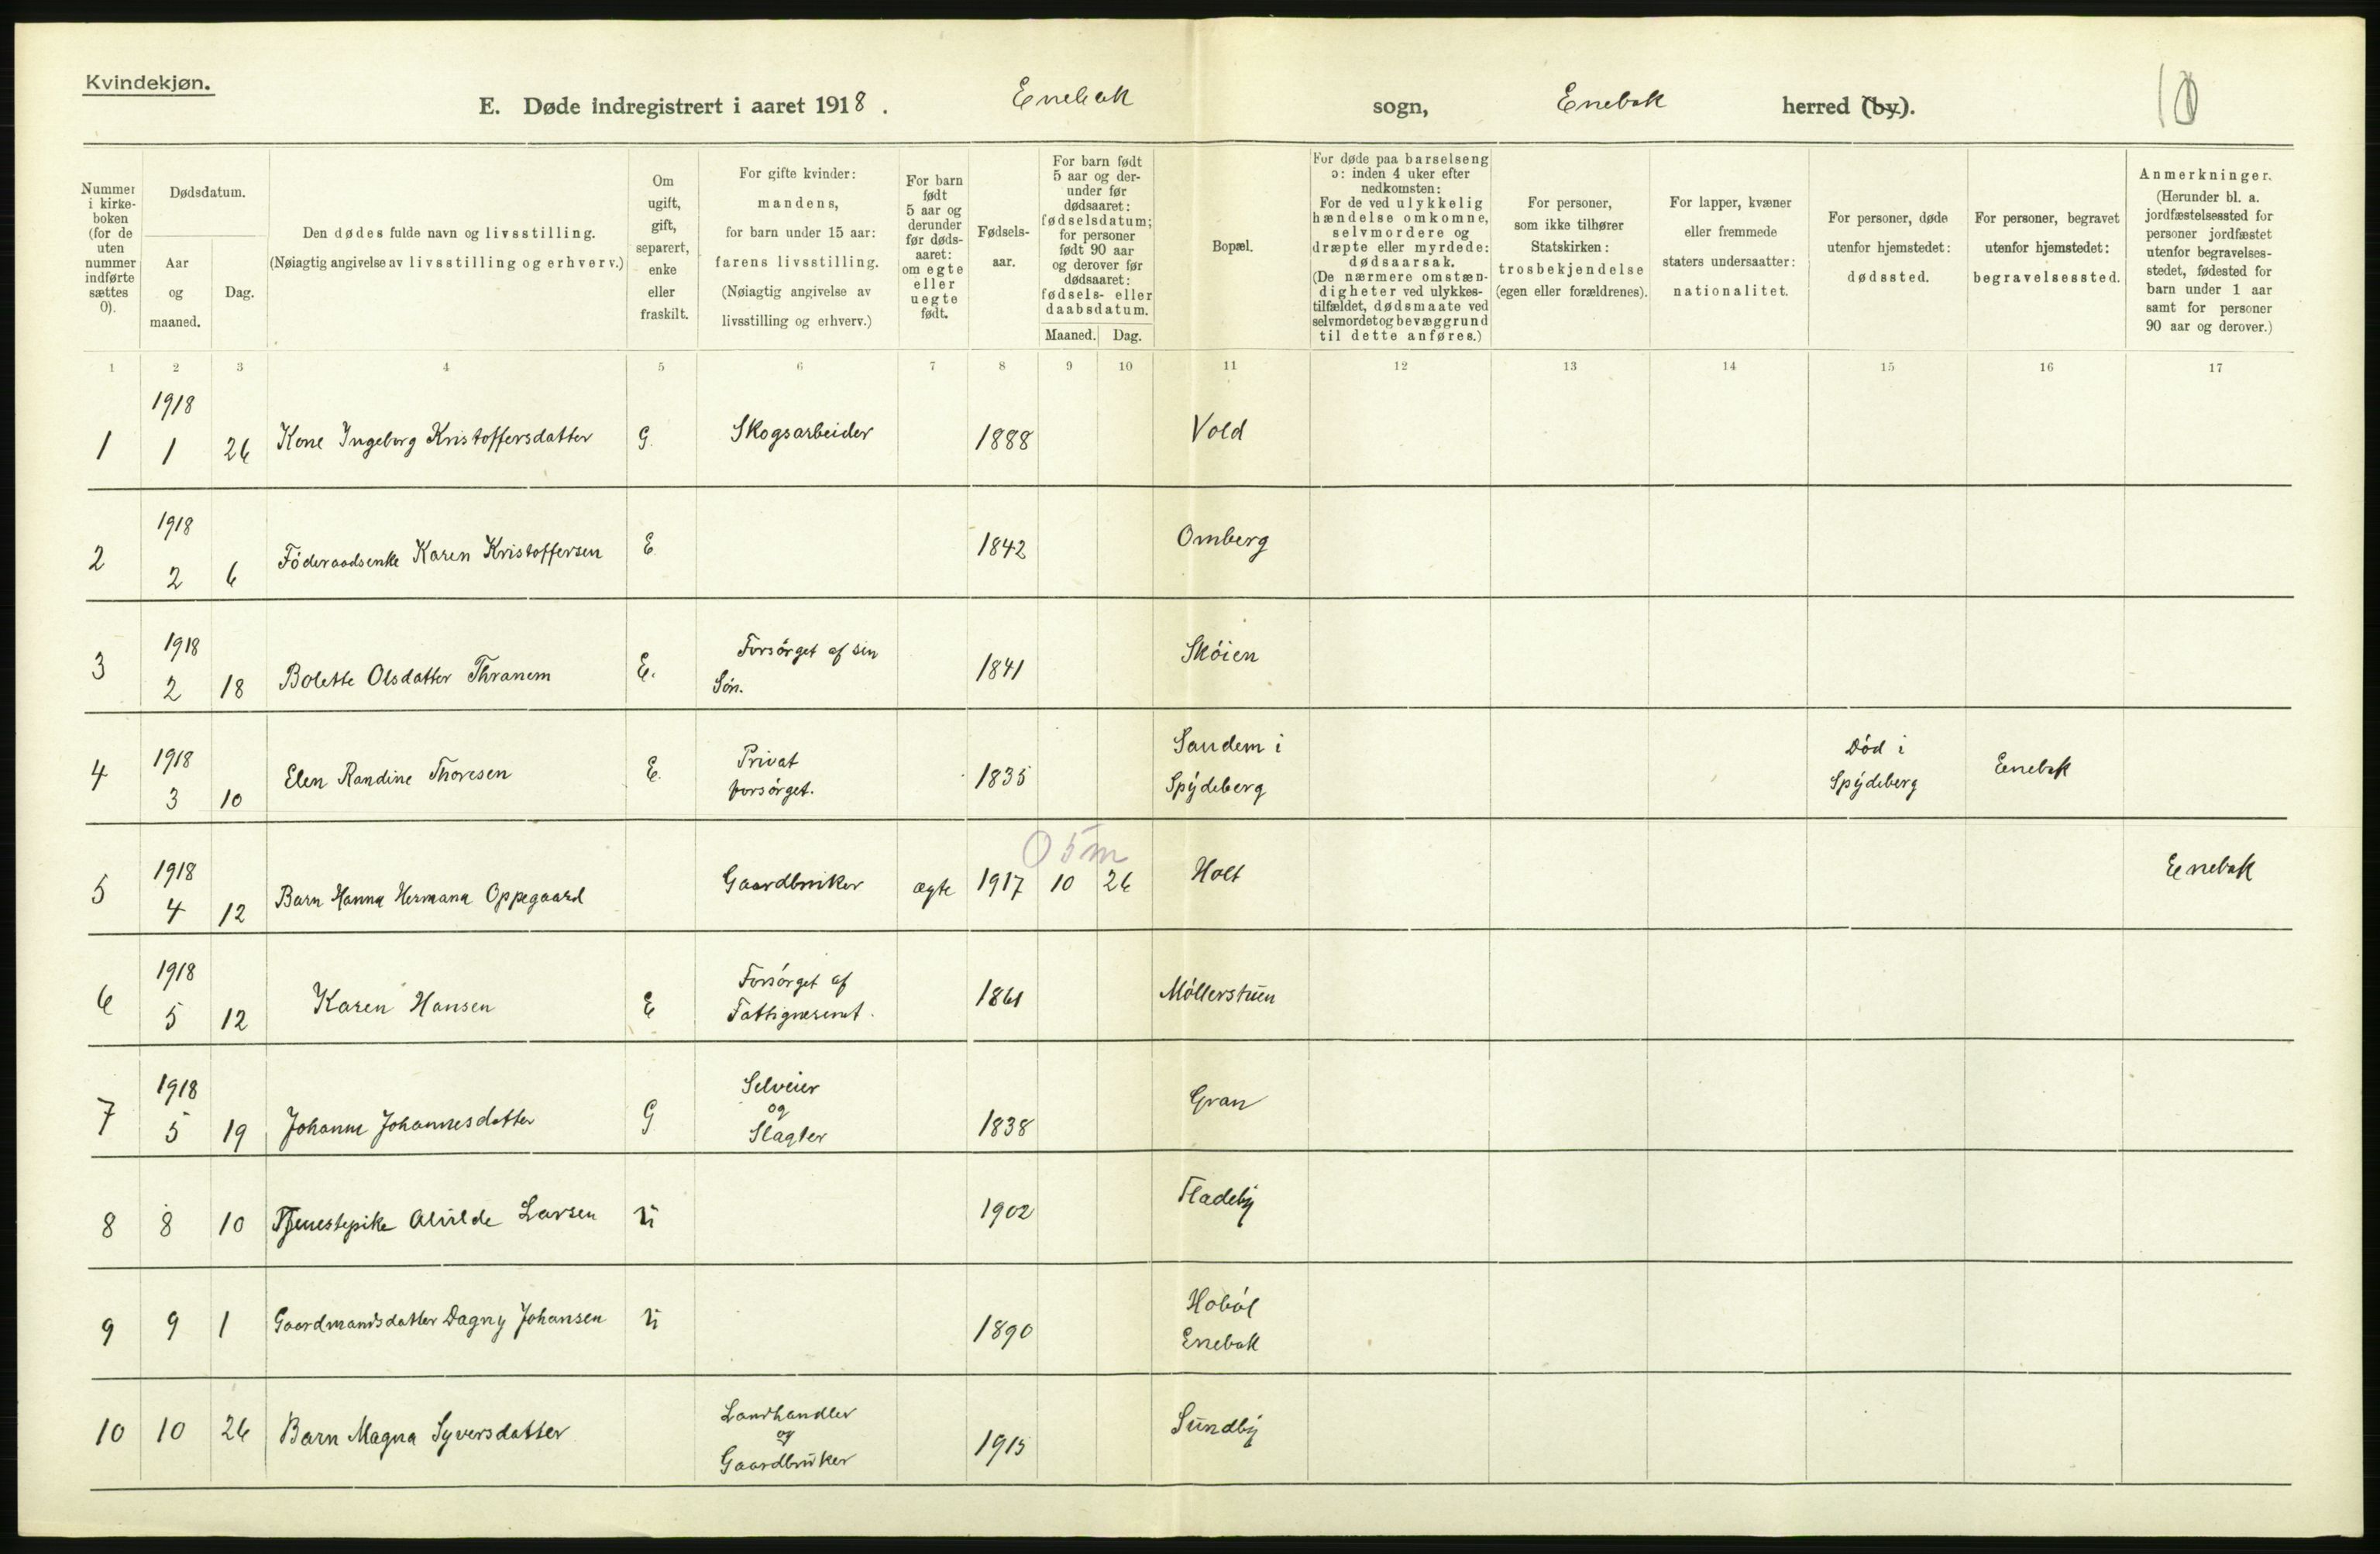 Kvindekjøn.
E. Døde indregistrert i aaret 1918. Enebak sogn, Enebak herred (by).
10
Nummer i kirke-boken (for de uten nummer indførte sættes 0).
Dødsdatum.
Aar og maaned.
Dag.
Den dødes fulde navn og livsstilling.
(Nøiagtig angivelse av livsstilling og erhverv.)
Om ugift, gift, separert, enke eller fraskilt.
For gifte kvinder:
mandens,
for barn under 15 aar:
farens livsstilling.
(Nøiagtig angivelse av
livsstilling og erhverv.)
For barn født 5 aar og derunder før døds-aaret: om egte eller uegte født.
Fødsels-aar.
For barn født 5 aar og der-under før dødsaaret: fødselsdatum; for personer født 90 aar og derover før dødsaaret: fødsels- eller daabsdatum.
Maaned. Dag.
Bopæl.
For døde paa barselseng
ɔ: inden 4 uker efter
nedkomsten:
For de ved ulykkelig
hændelse omkomne,
selvmordere og
dræpte eller myrdede:
dødsaarsak.
(De nærmere omstæn-
digheter ved ulykkes-
tilfældet, dødsmaate ved
selvmordet og bevæggrund
til dette anføres.)
For personer,
som ikke tilhører
Statskirken:
trosbekjendelse
(egen eller forældrenes).
For lapper, kvæner
eller fremmede
staters undersaatter:
nationalitet.
For personer, døde
utenfor hjemstedet:
dødssted.
For personer, begravet
utenfor hjemstedet:
begravelsessted.
Anmerkninger.
(Herunder bl. a.
jordfæstelsessted for
personer jordfæstet
utenfor begravelses-
stedet, fødested for
barn under 1 aar
samt for personer
90 aar og derover.)
1 2 3 4 5 6 7 8 9 10 11 12 13 14 15 16 17
1918
1 1 26 Kone Ingeborg Kristoffersdatter G. Skogsarbeider 1888 Vold
1918
2 2 6 Föderaadsenke Karen Kristoffersen E. 1842 Omberg
1918
3 2 18 Bolette Olsdatter Thranem E. Forsörget af sin Sön. 1841 Sköien
1918
4 3 10 Elen Randine Thoresen E. Privat forsörget. 1835 Sandem i Spydeberg Död i Spydeberg Enebak
0 5m
1918
5 4 12 Barn Hanna Hermana Oppegaard Gaardbruker ægte 1917 10 26 Holt Enebak
1918
6 5 12 Karen Hansen E Forsörget af Fattigvesenet. 1861 Möllerstuen
1918
7 5 19 Johanne Johannesdatter G Selveier og Slagter 1838 Gran
8 8 10 Tjenestepike Alvilde Larsen U 1902 Fladeby
9 9 1 Gaardmandsdatter Dagny Johansen U 1890 Haböl Enebak
10 10 26 Barn Magna Syversdatter Landhandler og Gaardbruker 1915 Sundby